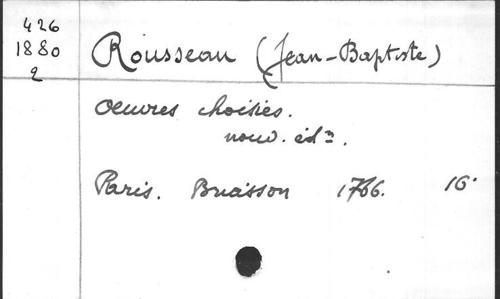 426
1880
2
Rousseau (Jean-Baptiste)
Oeuvres choisies.
nouv. édⁿ.
Paris. Briasson 1766. 16°